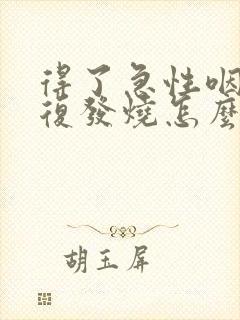 得了急性咽
復發燒怎麼
胡玉屏